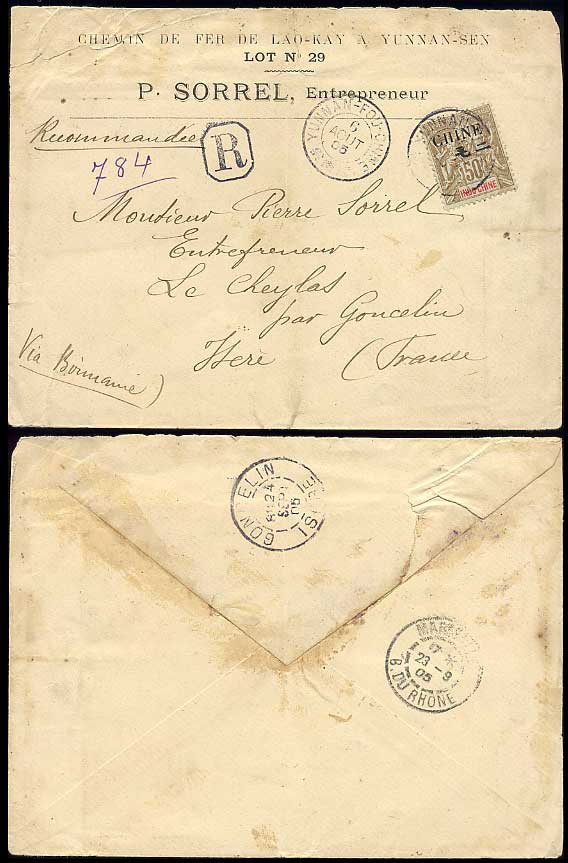 CHEMIN DE FER DE LAO-KAY A YUNNAN-SEN
LOT No 29
P. SORREL, Entrepreneur
Recommandée
R
784
YUNNAN-FOU-CHINE
6
AOUT
05
YUNNAN
CHINE
50
INDO-CHINE
Monsieur Pierre Sorrel
Entrepreneur
Le Cheylas
par Goncelin
Isère (France
Via Birmanie)
GON ELIN
24
SEPT
05
ISERE
MAR
7 *
23 - 9
05
B. DU RHONE